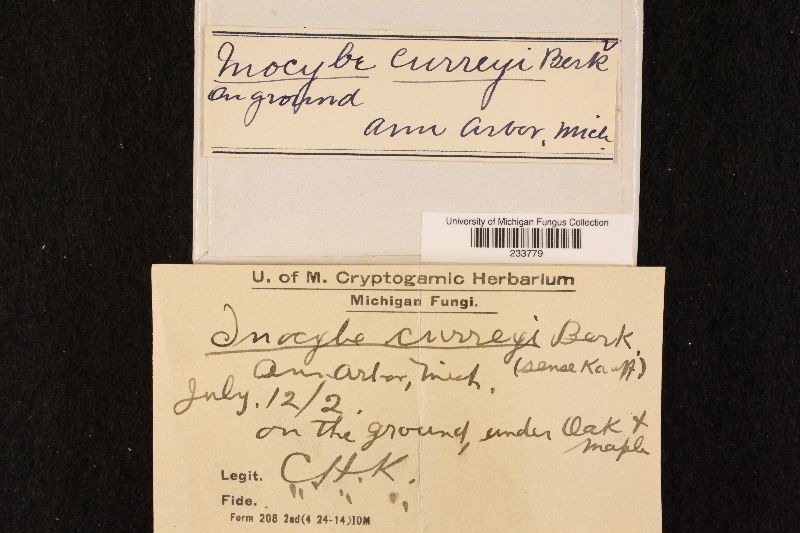 Inocybe curreyi Berk
On ground
Ann Arbor, Mich.
University of Michigan Fungus Collection
233779
U. of M. Cryptogamic Herbarium
Michigan Fungi.
Inocybe curreyi Berk.
Ann Arbor, Mich. (sense Kauff)
July. 12/2.
on the ground, under Oak &
maple
Legit. C.H.K.
Fide. " " "
Form 208 2nd(4 24-14)10M